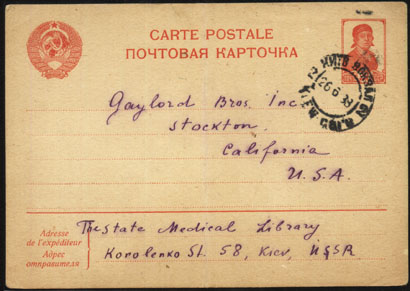 CARTE POSTALE
ПОЧТОВАЯ КАРТОЧКА
Gaylord Bros. Inc.
Stockton
California
U.S.A.
Adresse
de l'expéditeur
Адрес
отправителя
The State Medical Library
Korolenko St. 58, Kiev, USSR